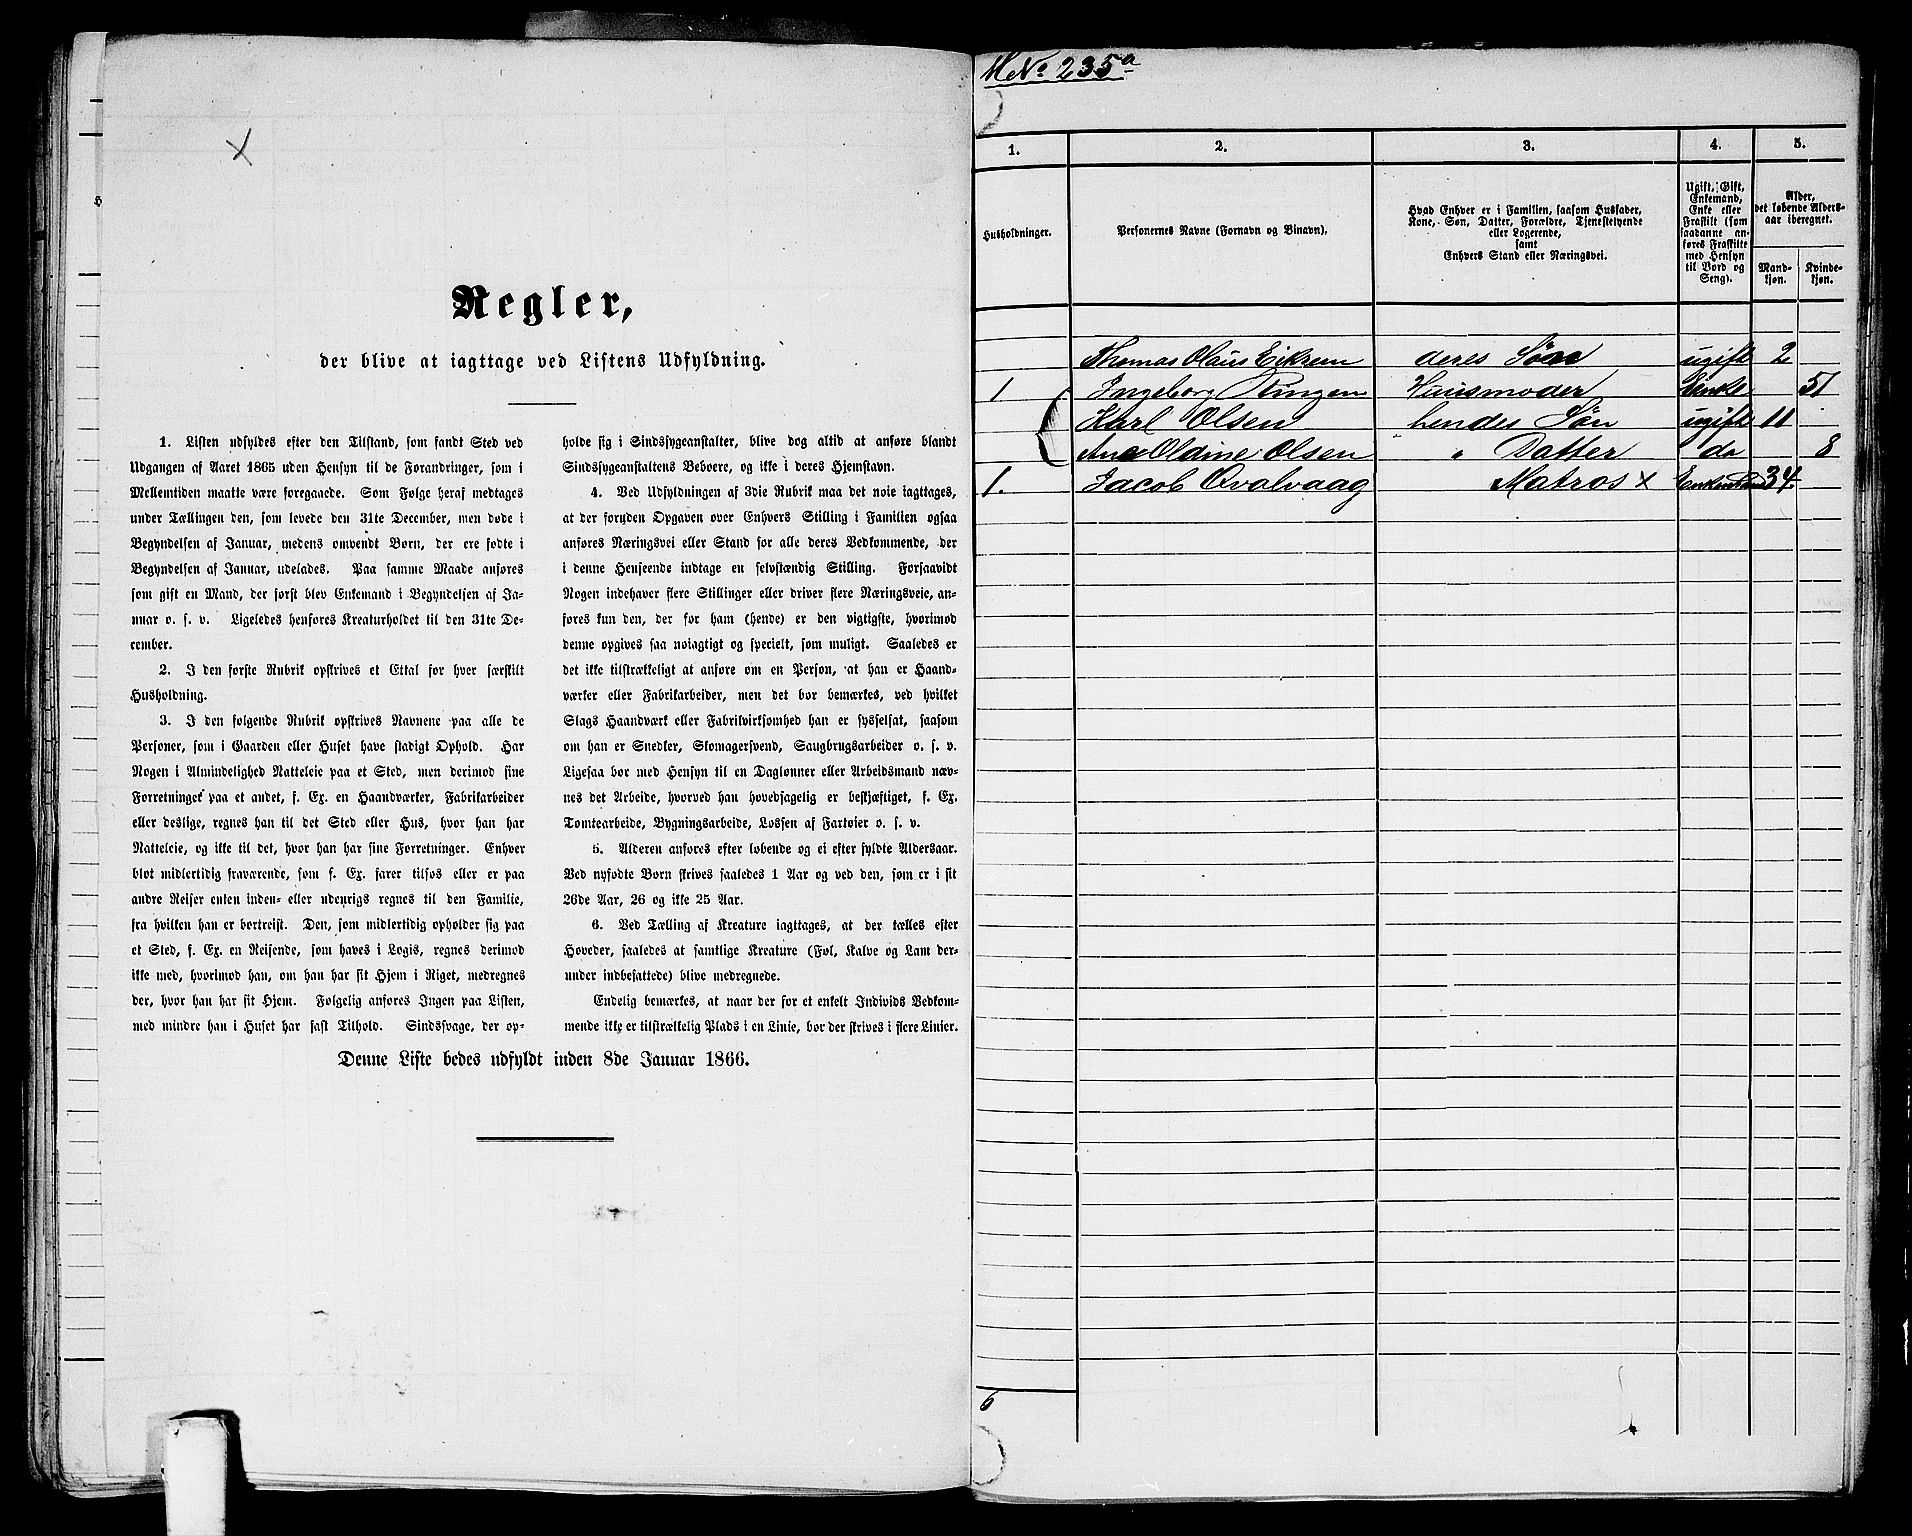 Regler,
der blive at iagttage ved Listens Udfyldning.
1. Listen udfyldes efter den Tilstand, som fandt Sted ved
Udgangen af Aaret 1865 uden Hensyn til de Forandringer, som i
Mellemtiden maatte være foregaaede. Som Følge heraf medtages
under Tællingen den, som levede den 31te December, men døde i
Begyndelsen af Januar, medens omvendt Børn, der ere fødte i
Begyndelsen af Januar, udelades. Paa samme Maade anføres
som gift en Mand, der først blev Enkemand i Begyndelsen af Ja-
nuar o. s. v. Ligeledes henføres Kreaturholdet til den 31te De-
cember.
2. I den første Rubrik opskrives et Ettal for hver særskilt
Husholdning.
3. I den følgende Rubrik opskrives Navnene paa alle de
Personer, som i Gaarden eller Huset have stadigt Ophold. Har
Nogen i Almindelighed Natteleie paa et Sted, men derimod sine
Forretninger paa et andet, f. Ex. en Haandværker, Fabrikarbeider
eller deslige, regnes han til det Sted eller Hus, hvor han har
Natteleie, og ikke til det, hvor han har sine Forretninger. Enhver
blot midlertidig fraværende, som f. Ex. farer tilsøs eller er paa
andre Reiser enten inden- eller udenrigs regnes til den Familie,
fra hvilken han er bortreist. Den, som midlertidig opholder sig paa
et Sted, f. Ex. en Reisende, som haves i Logis, regnes derimod
ikke med, hvorimod han, om han har sit Hjem i Riget, medregnes
der, hvor han har sit Hjem. Følgelig anføres Ingen paa Listen,
med mindre han i Huset har fast Tilhold. Sindssvage, der op-
holde sig i Sindssygeanstalter, blive dog altid at anføre blandt
Sindssygeanstaltens Beboere, og ikke i deres Hjemstavn.
4. Ved Udfyldningen af 3die Rubrik maa det nøie iagttages,
at der foruden Opgaven over Enhvers Stilling i Familien ogsaa
anføres Næringsvei eller Stand for alle deres Vedkommende, der
i denne Henseende indtage en selvstændig Stilling. Forsaavidt
Nogen indehaver flere Stillinger eller driver flere Næringsveie, an-
føres kun den, der for ham (hende) er den vigtigste, hvorimod
denne opgives saa nøiagtigt og specielt, som muligt. Saaledes er
det ikke tilstrækkeligt at anføre om en Person, at han er Haand-
værker eller Fabrikarbeider, men det bør bemærkes, ved hvilket
Slags Haandværk eller Fabrikvirksomhed han er sysselsat, saasom
om han er Snedker, Skomagersvend, Saugbrugsarbeider o. s. v.
Ligesaa bør med Hensyn til en Daglønner eller Arbeidsmand næv-
nes det Arbeide, hvorved han hovedsagelig er beskjæftiget, f. Ex.
Tomtearbeide, Bygningsarbeide, Lossen af Fartøier o. s. v.
5. Alderen anføres efter løbende og ei efter fyldte Aldersaar.
Ved nyfødte Børn skrives saaledes 1 Aar og ved den, som er i sit
26de Aar, 26 og ikke 25 Aar.
6. Ved Tælling af Kreature iagttages, at der tælles efter
Hoveder, saaledes at samtlige Kreature (Føl, Kalve og Lam der-
under indbefattede) blive medregnede.
Endelig bemærkes, at naar der for et enkelt Individs Vedkom-
mende ikke er tilstrækkelig Plads i en Linie, bør der skrives i flere Linier.
Denne Liste bedes udfyldt inden 8de Januar 1866.
MNo 235a
1. 2. 3. 4. 5.
Husholdninger.
Personernes Navne (Fornavn og Binavn).
Hvad Enhver er i Familien, saasom Husfader,
Kone, Søn, Datter, Forældre, Tjenestetyende
eller Logerende,
samt
Enhvers Stand eller Næringsvei.
Ugift, Gift,
Enkemand,
Enke eller
Fraskilt (som
saadanne an-
føres Fraskilte
med Hensyn
til Bord og
Seng).
Alder,
det løbende Alders-
aar iberegnet.
Mand-
kjøn.
Kvinde-
kjøn.
Thomas Olaus Eiksem deres Søn ugift 2
1 Ingeborg Ringen Huusmoder Enke 51
Karl Olsen hendes Søn ugift 11
Ane Oldine Olsen " Datter do 8
1. Jacob Qvalvaag Matros x Enkemand 34
6